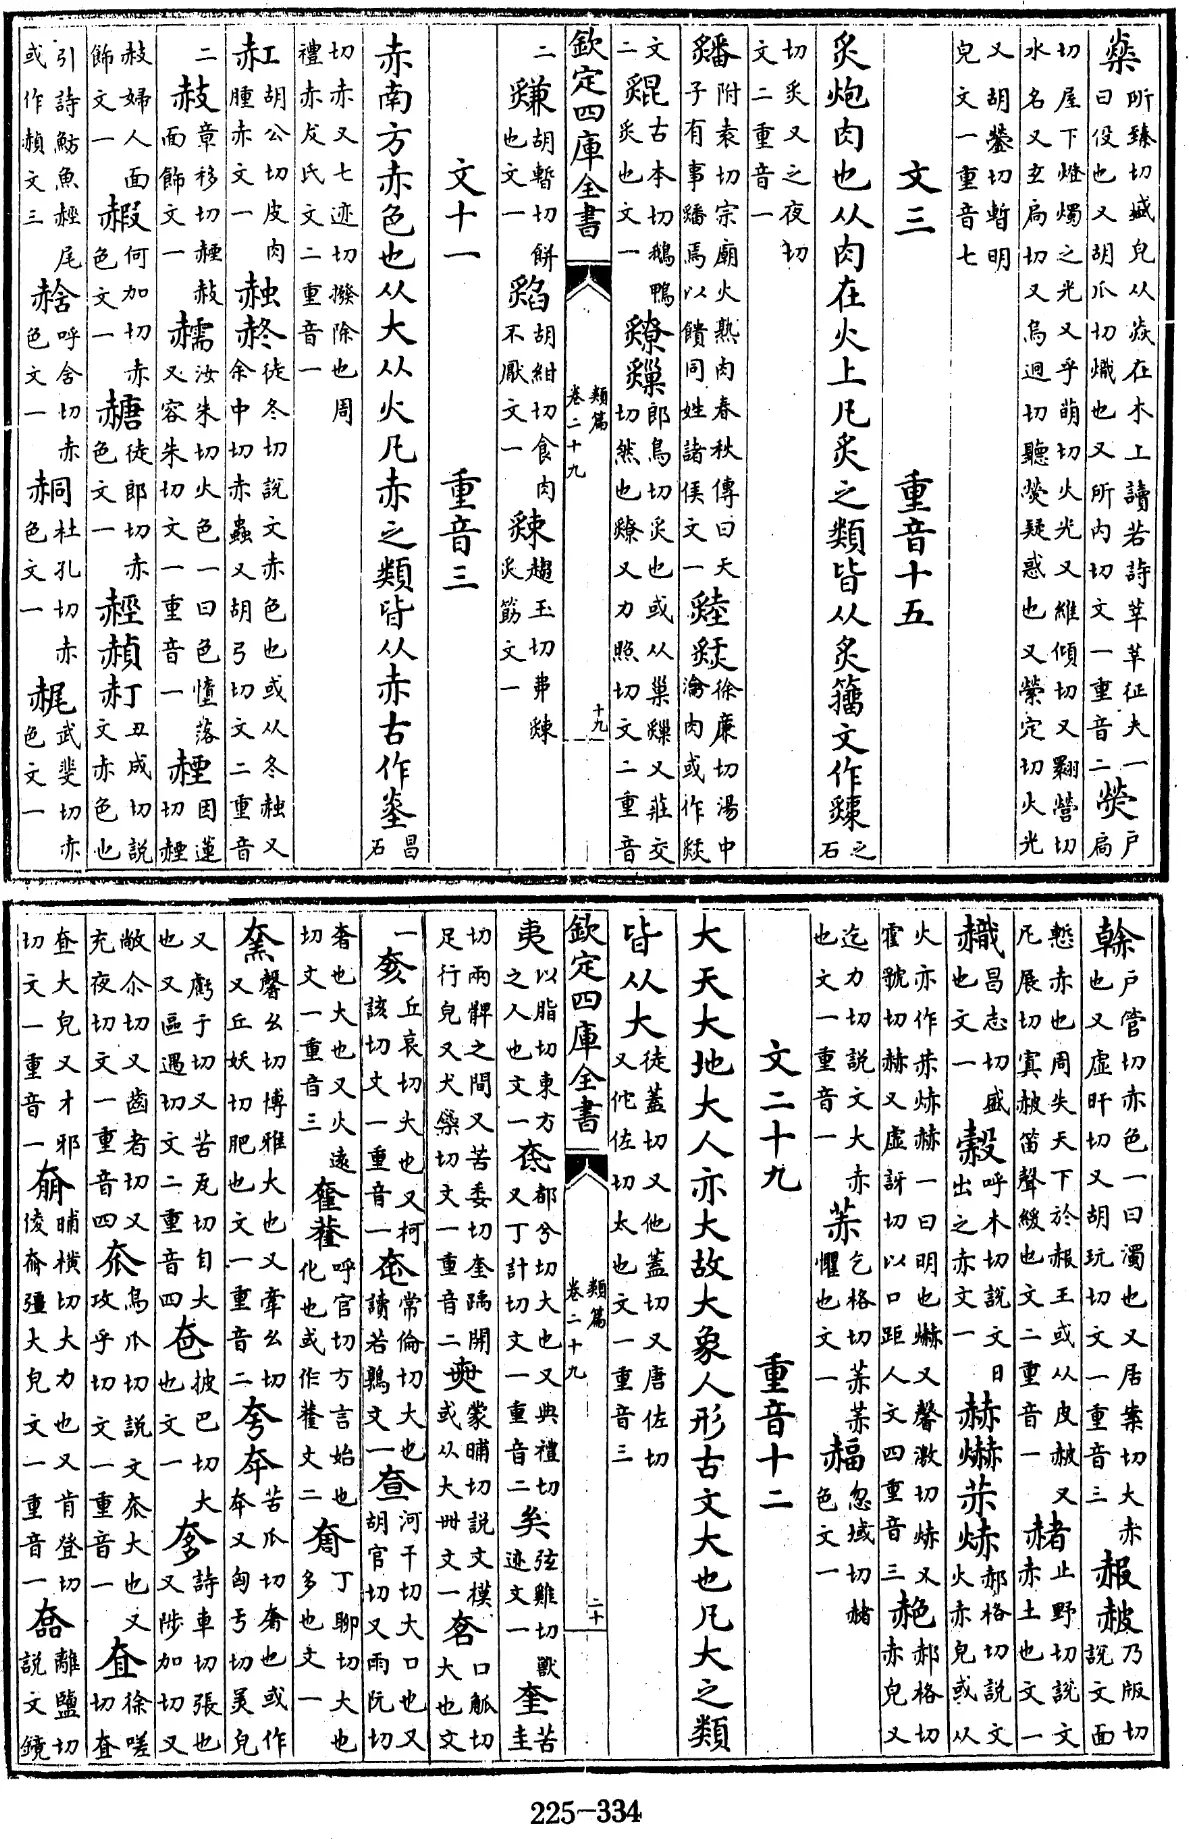 燊所臻切盛皃从焱在木上讀若詩莘莘征夫一曰伇也又胡爪切熾也又所内切文一重音二熒戶扃
切屋下燈燭之光又乎萌切火光又維傾切又翾營切水名又玄扃切又烏迥切聽熒疑惑也又縈定切火光
又胡鎣切暫明皃文一重音七
文三 重音十五
炙炮肉也从肉在火上凡炙之類皆从炙籀文作之石
切炙又之夜切文二重音一
附袁切宗廟火熟肉春秋傳曰天子有事膰焉以饋同姓諸侯文一徐廉切湯中瀹肉或作
文二古本切鵝鴨炙也文一郎鳥切炙也或从巢又莊交切然也又力照切文二重音
欽定四庫全書 類篇 卷二十九 十九
二胡暫切餅也文一胡紺切食肉不厭文一趨玉切弗炙筯文一
文十一 重音三
赤南方赤色也从大从火凡赤之類皆从赤古作烾昌石
切赤又七迹切撥除也周禮赤犮氏文二重音一
𧹛胡公切皮肉腫赤文一赨𧹣徒冬切說文赤色也或从冬赨又余中切赤蟲又胡弓切文二重音
二章移切面飾文一汝朱切火色一曰色憧落又容朱切文一重音一因蓮切
婦人面飾文一赮何加切赤色文一赯徒郎切赤色文一䞓赬𧹈丑成切說文赤色也
引詩魴魚䞓尾或作赬文三呼舍切赤色文一杜孔切赤色文一武斐切赤色文一
𧹳戶管切赤色一曰濁也又居案切大赤也又虛旰切又胡玩切文一重音三赧乃版切說文面
慙赤也周失天下於赧王或从皮又尼展切寘笛聲緩也文二重音一赭止野切說文赤土也文一
昌志切盛也文一呼木切說文日出之赤文一赫爀郝格切說文火赤皃或从
火亦作赫一曰明也爀又馨激切又霍虢切赫又虛訝切以口距人文四重音三赩郝格切赤皃又
迄力切說文大赤也文一重音一乞格切懼也文一忽域切赭色文一
文二十九 重音十二
大天大地大人亦大故大象人形古文大也凡大之類
皆从大徒蓋切又他蓋切又唐佐切又佗佐切太也文一重音三
欽定四庫全書 類篇 卷二十九 二十
夷以脂切東方之人也文一奃都兮切大也又典禮切又丁計切文一重音二弦雞切獸迹文一奎苦圭
切兩髀之間又苦委切奎踽開足行皃又犬橤切文一重音二蒙晡切說文模或从大卌文一口觚切大也文
一丘哀切大也又柯該切文一重音一奄常倫切大也讀若鶉文一河干切大口也又胡官切又雨阮切
奢也大也又火遠切文一重音三呼官切方言始也化也或作文二奝丁聊切大也多也文一
馨幺切博雅大也又牽幺切又丘妖切肥也文一重音二夸苦瓜切奢也或作又匈于切美皃
又虧于切又苦瓦切自大也又區遇切文二重音四夿披巴切大也文一奓詩車切張也又陟加切又
敞尒切又齒者切又充夜切文一重音四夵烏爪切說文大也又攻乎切文一重音一徐嗟切
大皃又才邪切文一重音一晡橫切大力也又肯登切倰奟彊大皃文一重音一離鹽切說文鏡
225-334